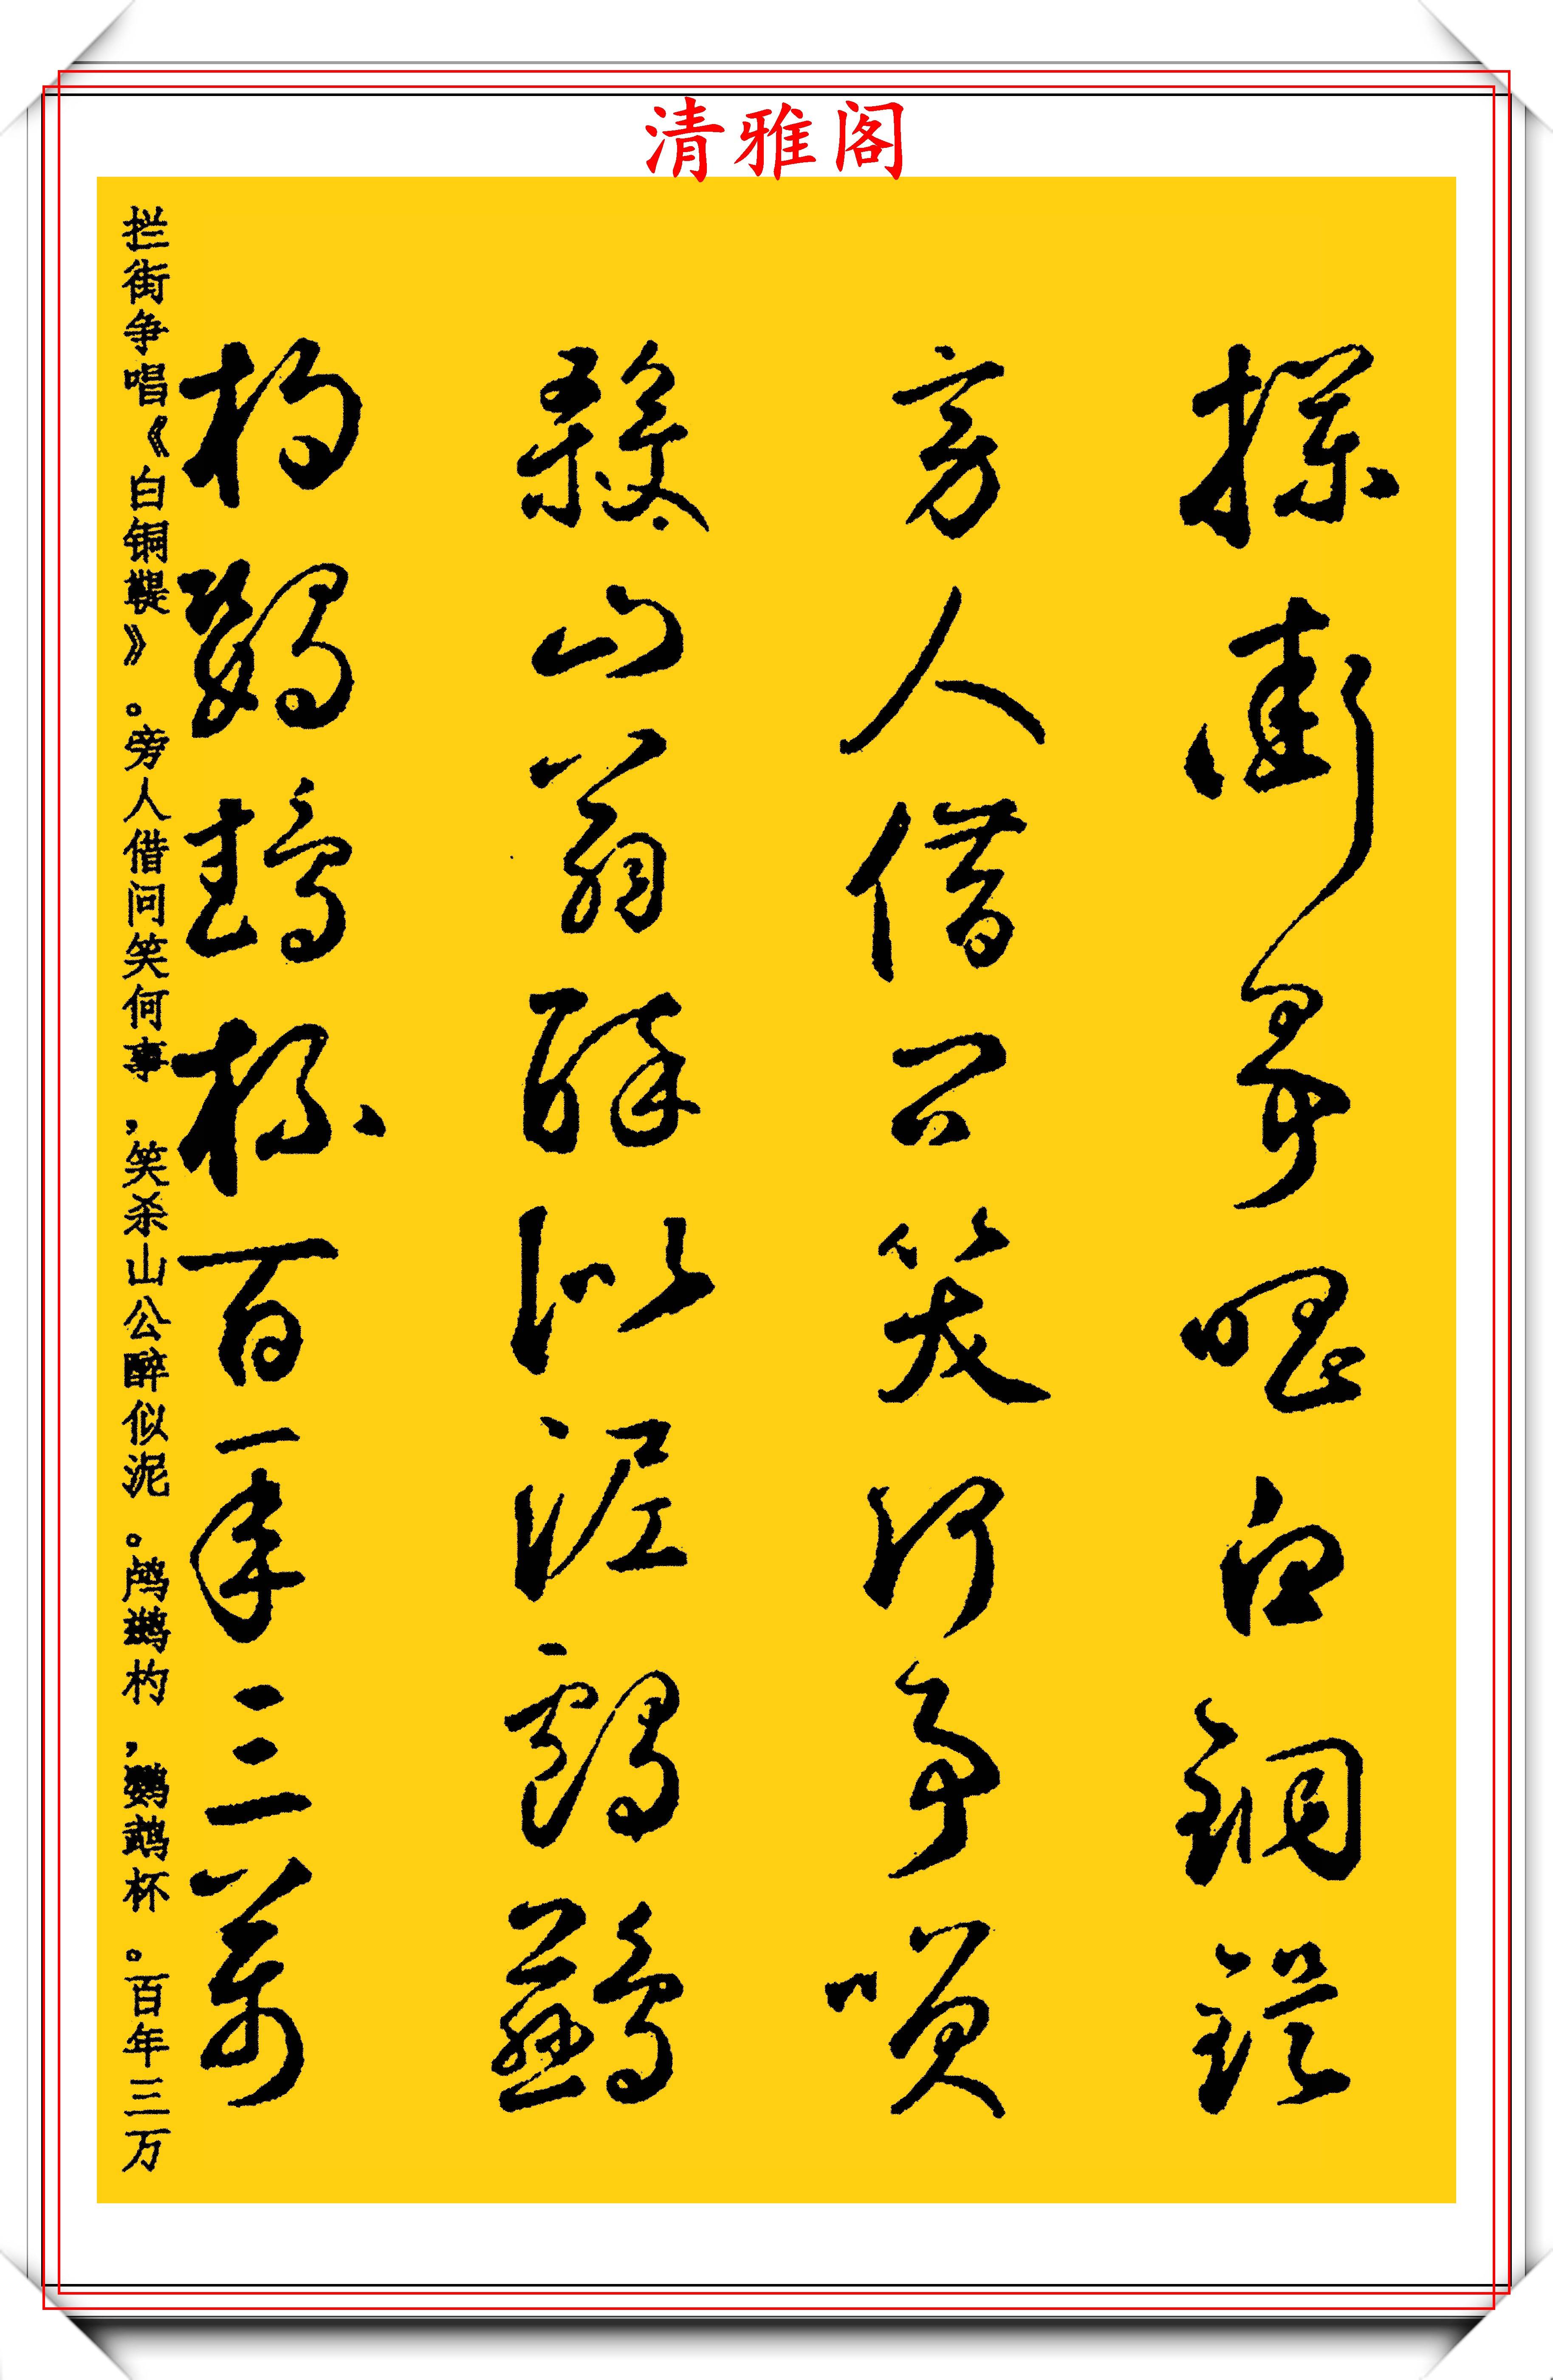 清雅阁
攔街爭唱白銅鍉
旁人借問笑何事咲
殺山翁醉似泥鸕鷀
杓鸚鵡杯百年三萬
拦街争唱《白铜鞮》。旁人借问笑何事,笑杀山公醉似泥。鸬鹚杓,鹦鹉杯。百年三万